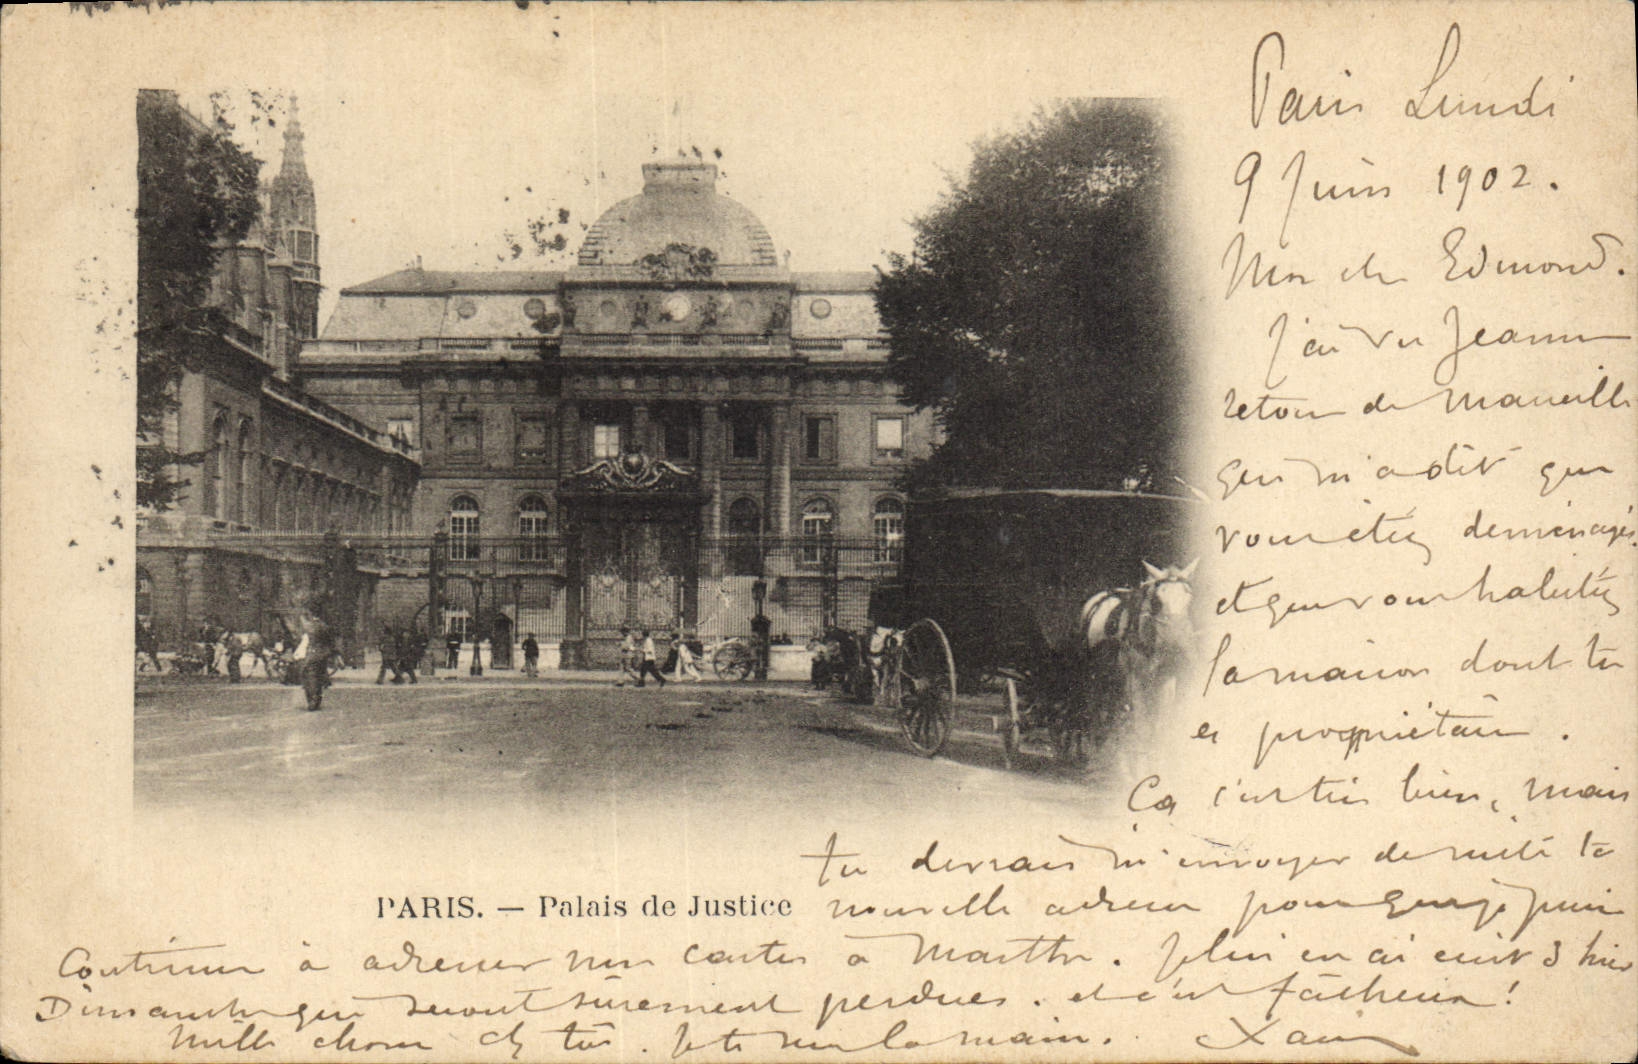 Paris Lundi
9 Juin 1902.
Mon cher Edmond.
J'ai vu Jeanne
retour de Marseille
qui m'a dit que
vous étiez déménagés
et que vous habitiez
la maison dont tu
es propriétaire.
Ça c'est très bien, mais
tu devrais m'envoyer de suite ta
PARIS. — Palais de Justice
nouvelle adresse pour que je puisse
Continuer à adresser mes cartes à Marthe. Je lui en ai écrit 3 hier
Dimanche qui seront sûrement perdues. et c'est fâcheux!
Mille choses chez toi. Je te serre la main.